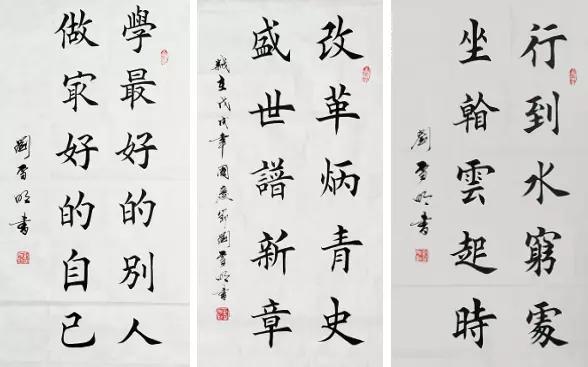 學最好的別人
做㝡好的自己
劉雪明書
改革炳青史
盛世譜新章
歲在戊戌年國慶節劉雪明書
行到水窮處
坐翰雲起時
劉雪明書